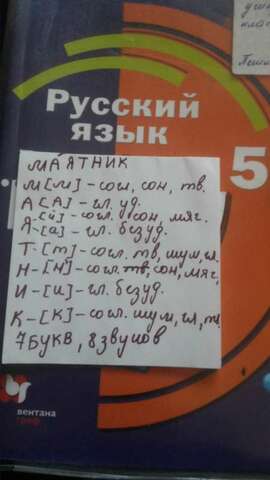 учени
клас
Русский
язык
5
МАЯТНИК
М[м]-согл, сон, тв.
А[А]-гл. уд.
-[й]-согл. сон, мяг.
Я-[а]-гл. безуд.
Т-[т]-согл. тв, шум, гл.
Н-[Н]-согл. тв, сон, мяг,
И-[и]-гл. безуд.
К-[К]-согл. шум, гл, тв.
7БУКВ, 8 звуков
вентана
граф